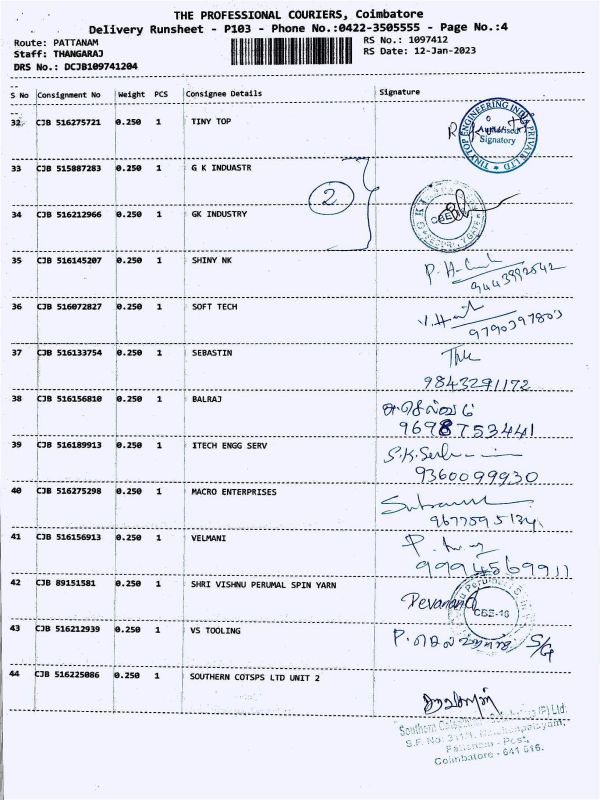 THE PROFESSIONAL COURIERS, Coimbatore
Delivery Runsheet - P103 - Phone No.:0422-3505555 - Page No.:4
Route: PATTANAM RS No.: 1097412
Staff: THANGARAJ RS Date: 12-Jan-2023
DRS No.: DCJB109741204
S No Consignment No Weight PCS Consignee Details Signature
32 CJB 516275721 0.250 1 TINY TOP
TINY TOP ENGINEERING INDIA PRIVATE LTD
Authorised
Signatory
33 CJB 515887283 0.250 1 G K INDUASTR
2
34 CJB 516212966 0.250 1 GK INDUSTRY
CBE
SECURITY GATE
35 CJB 516145207 0.250 1 SHINY NK
9443992642
36 CJB 516072827 0.250 1 SOFT TECH
9790397803
37 CJB 516133754 0.250 1 SEBASTIN
9843291172
38 CJB 516156810 0.250 1 BALRAJ
9698753441
39 CJB 516189913 0.250 1 ITECH ENGG SERV
9360099930
40 CJB 516275298 0.250 1 MACRO ENTERPRISES
9677595134
41 CJB 516156913 0.250 1 VELMANI
9994569911
42 CJB 89151581 0.250 1 SHRI VISHNU PERUMAL SPIN YARN
Devanand
CBE-16
43 CJB 516212939 0.250 1 VS TOOLING
S/G
44 CJB 516225086 0.250 1 SOUTHERN COTSPS LTD UNIT 2
Southern (P) Ltd.
S.F. No.
Pattanam - Post,
Coimbatore - 641 016.